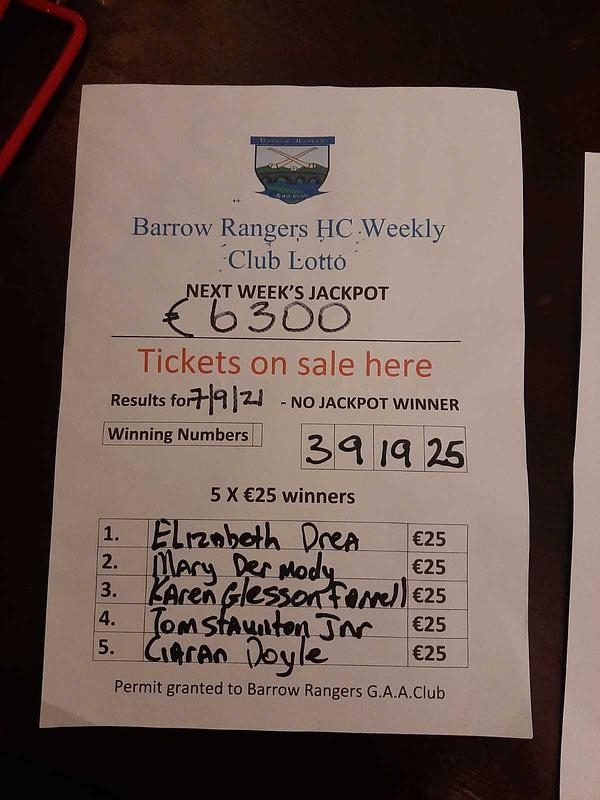 Barrow Rangers HC Weekly
Club Lotto
NEXT WEEK'S JACKPOT
€6300
Tickets on sale here
Results for 7/9/21 - NO JACKPOT WINNER
Winning Numbers 3 9 19 25
5 X €25 winners
1. Elizabeth Drea €25
2. Mary Dermody €25
3. Karen Glesson Farrell €25
4. Tom Staunton Jnr €25
5. Ciaran Doyle €25
Permit granted to Barrow Rangers G.A.A.Club